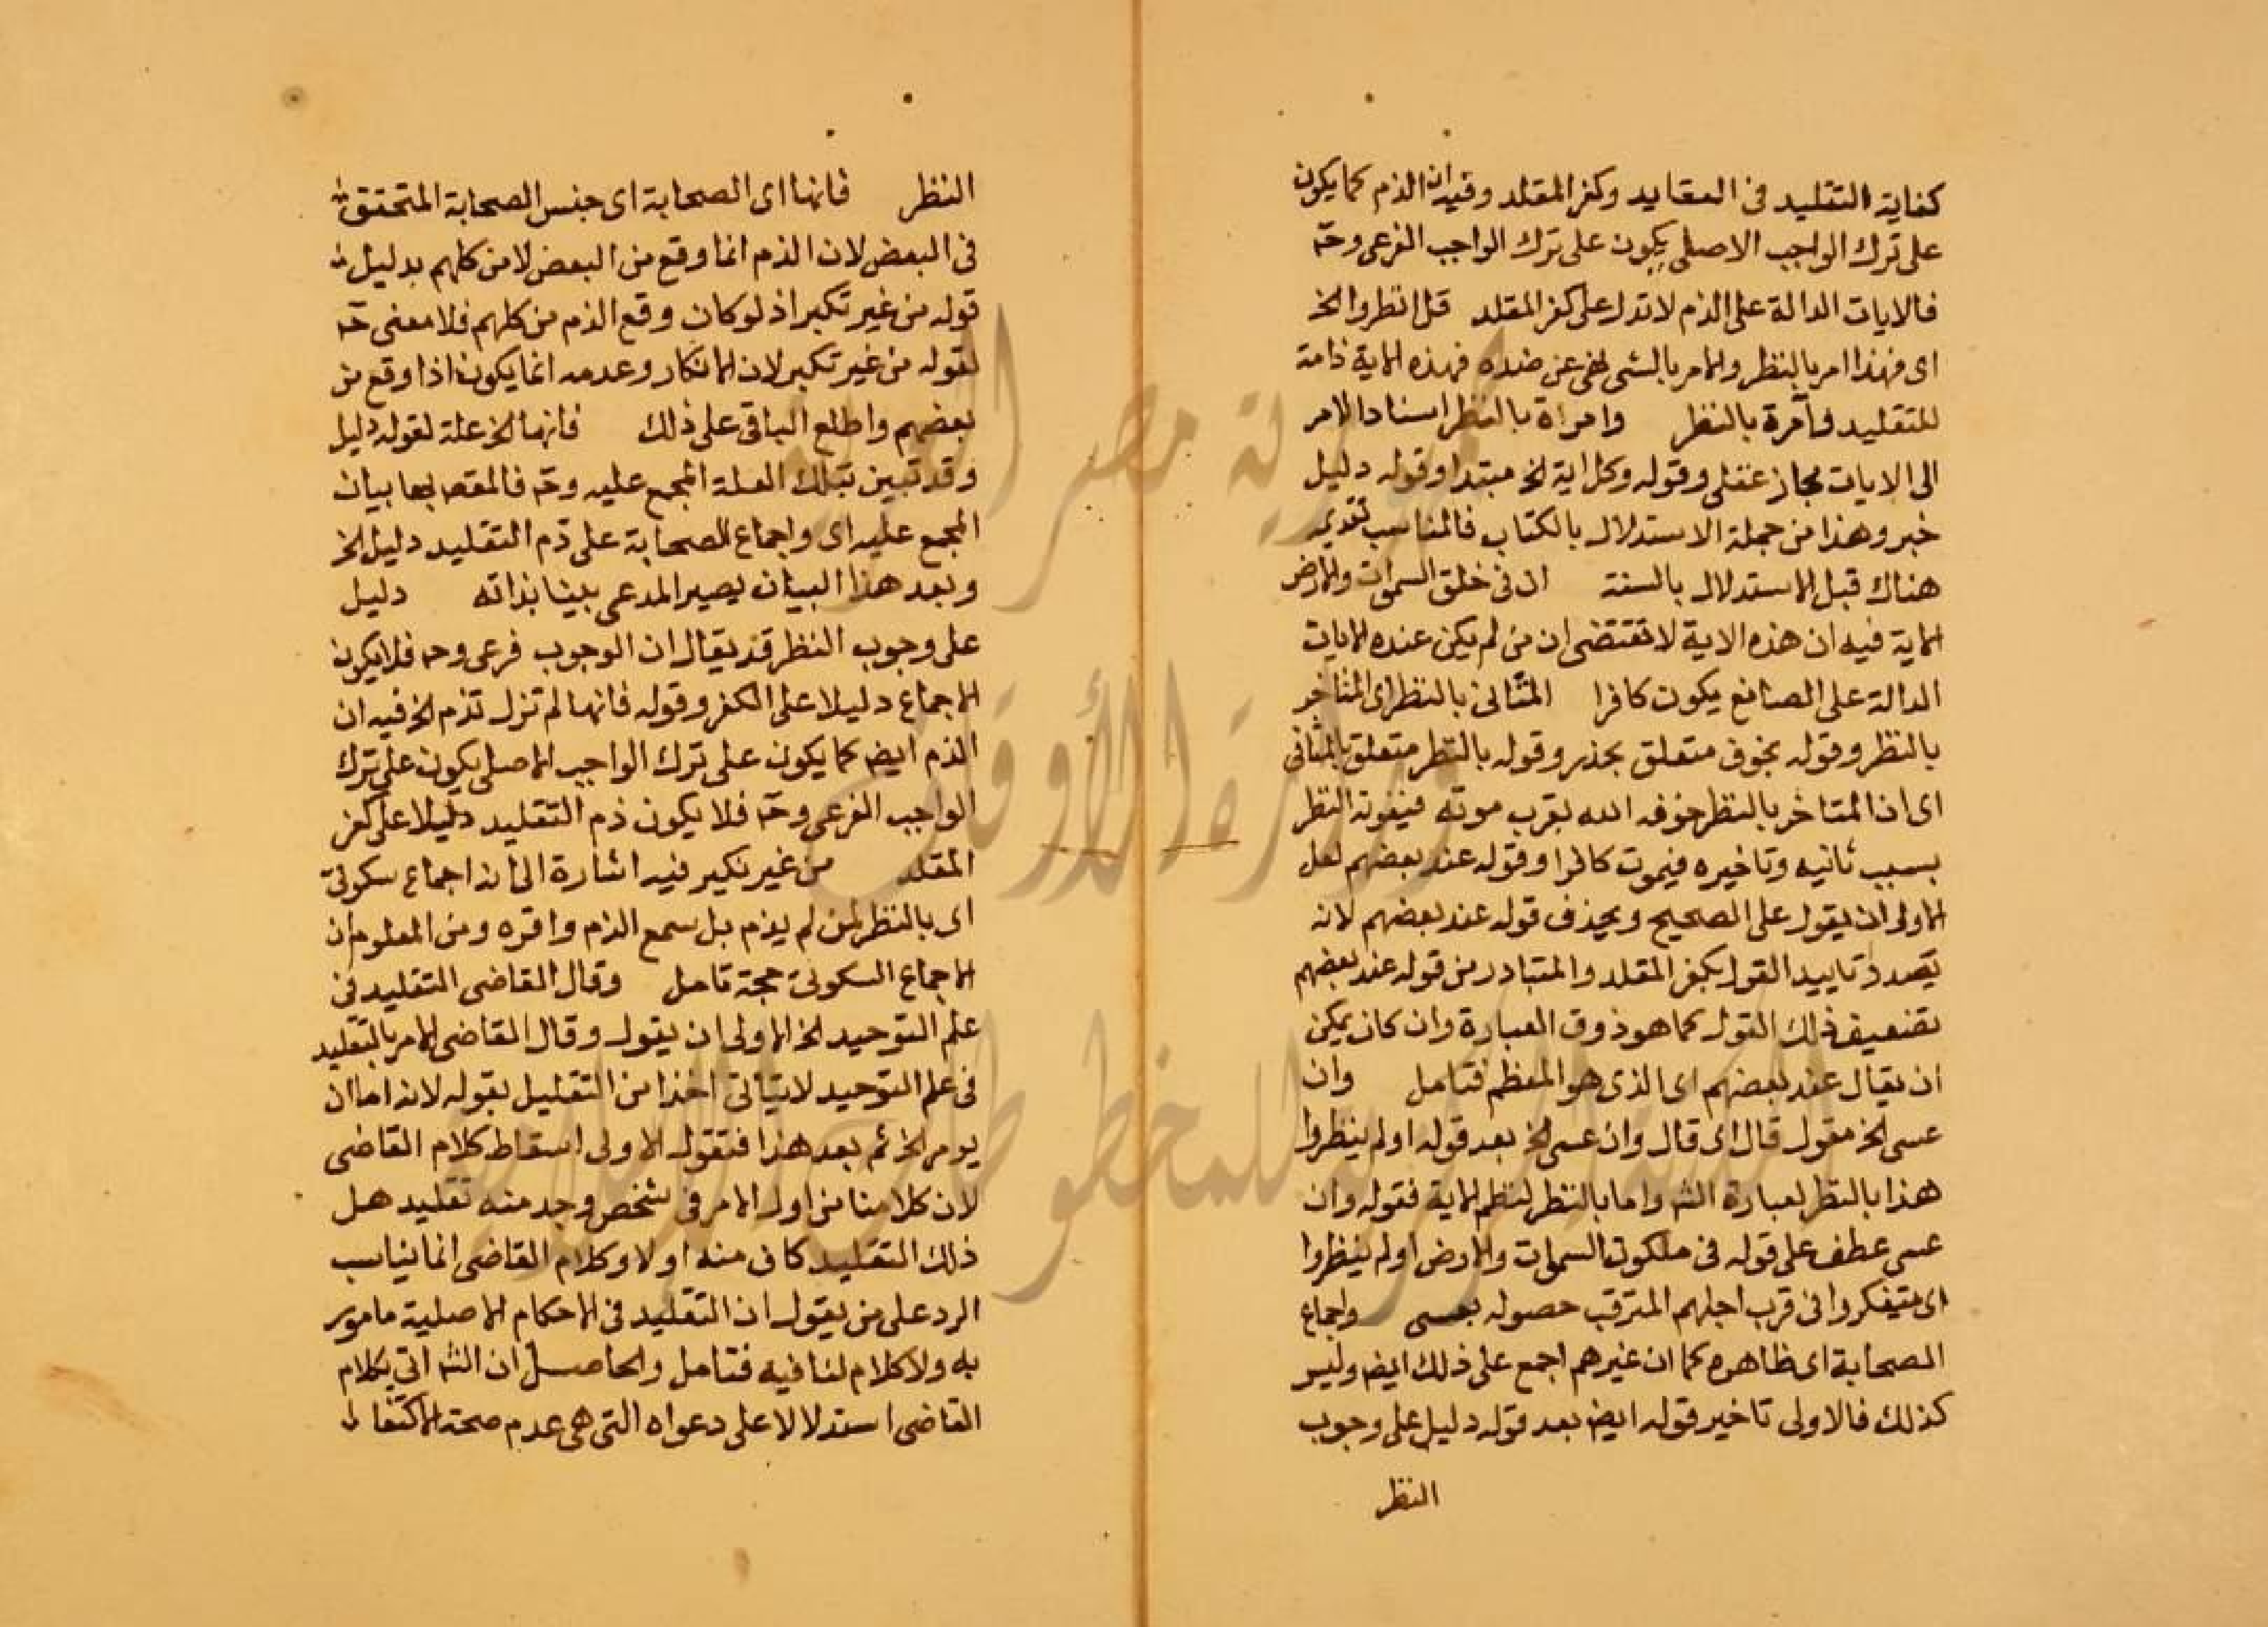 كفاية التقليد في العقايد وكفر المقلد وفيه ان الذم كما يكون
على ترك الواجب الاصلى يكون على ترك الواجب الفرعى وحـ
فالايات الدالة على الذم لا تدل على كفر المقلد قل انظروا الخ
اى فهذا امر بالنظر والامر بالشى نهى عن ضده فهذه الاية ذامة
للتقليد وآمرة بالنظر وامراة بالنظر اسناد الامر
الى الايات مجاز عقلى وقوله وكل اية الخ مبتدا وقوله دليل
خبر وهذا من جملة الاستدلال بالكتاب فالمناسب تقديمه
هناك قبل الاستدلال بالسنة ان في خلق السموات والارض
الاية فيه ان هذه الاية لا تقتضى ان من لم يكن عنده الايات
الدالة على الصانع يكون كافرا المتانى بالنظر اى المتاخر
بالنظر وقوله بخوف متعلق بحذر وقوله بالنظر متعلق بالمتانى
اى ان المتاخر بالنظر خوفه الله بقرب موته فيفوته النظر
بسبب تانيه وتاخيره فيموت كافرا وقوله عند بعضهم لعل
الاولى ان يقول على الصحيح ويحذف قوله عند بعضهم لانه
بصدد تاييد القول بكفر المقلد والمتبادر من قوله عند بعضهم
تضعيف ذلك القول كما هو ذوق العبارة وان كان يمكن
ان يقال عند بعضهم اى الذى هو المعظم فتامل وان
عسى الخ مقول قال اى قال وان عسى الخ بعد قوله اولم ينظروا
هذا بالنظر لعبارة الشـ واما بالنظر لنظم الاية فقوله وان
عسى عطف على قوله في ملكوت السموات والارض اولم ينظروا
اى يتفكروا فى قرب اجلهم المترقب حصوله بعسى واجماع
الصحابة اى ظاهره كما ان غيرهم اجمع على ذلك ايضـ وليس
كذلك فالاولى تاخير قوله ايضـ بعد قوله دليل على وجوب
النظر
النظر فانها اى الصحابة اى جنس الصحابة المتحقق
في البعض لان الذم انما وقع من البعض لا من كلهم بدليل
قوله من غير نكير اذ لو كان وقع الذم من كلهم فلا معنى حـ
لقوله من غير نكير لان الانكار وعدمه انما يكون اذا وقع من
بعضهم واطلع الباقى على ذلك فانها الخ علة لقوله دليل
وقد تبين بتلك العلة المجمع عليه وحـ فالمقصـ بها بيان
المجمع عليه اى واجماع الصحابة على ذم التقليد دليل الخ
وبعد هذا البيان يصير المدعى بينا بذاته دليل
على وجوب النظر قد يقال ان الوجوب فرعى وحـ فلا يكون
الاجماع دليلا على الكفر وقوله فانها لم تزل تذم الخ فيه ان
الذم ايضـ كما يكون على ترك الواجب الاصلى يكون على ترك
الواجب الفرعى وحـ فلا يكون ذم التقليد دليلا على كفر
المقلد من غير نكير فيه اشارة الى انه اجماع سكوتى
اى بالنظر لمن لم يذم بل سمع الذم واقره ومن المعلوم ان
الاجماع السكوتى حجة تامل وقال القاضى التقليد في
علم التوحيد الخ الاولى ان يقول وقال القاضى الامر بالتقليد
في علم التوحيد لا يتاتى اخذا من التعليل بقوله لانه اما ان
يومر الخ ثم بعد هذا فنقول الاولى اسقاط كلام القاضى
لان كلامنا من اول الامر في شخص وجد منه تقليد هل
ذلك التقليد كاف منه او لا وكلام القاضى انما يناسب
الرد على من يقول ان التقليد في الاحكام الاصلية مامور
به ولا كلام لنا فيه فتامل والحاصل ان الشـ اتى بكلام
القاضى استدلالا على دعواه التى هى عدم صحة الاكتفا